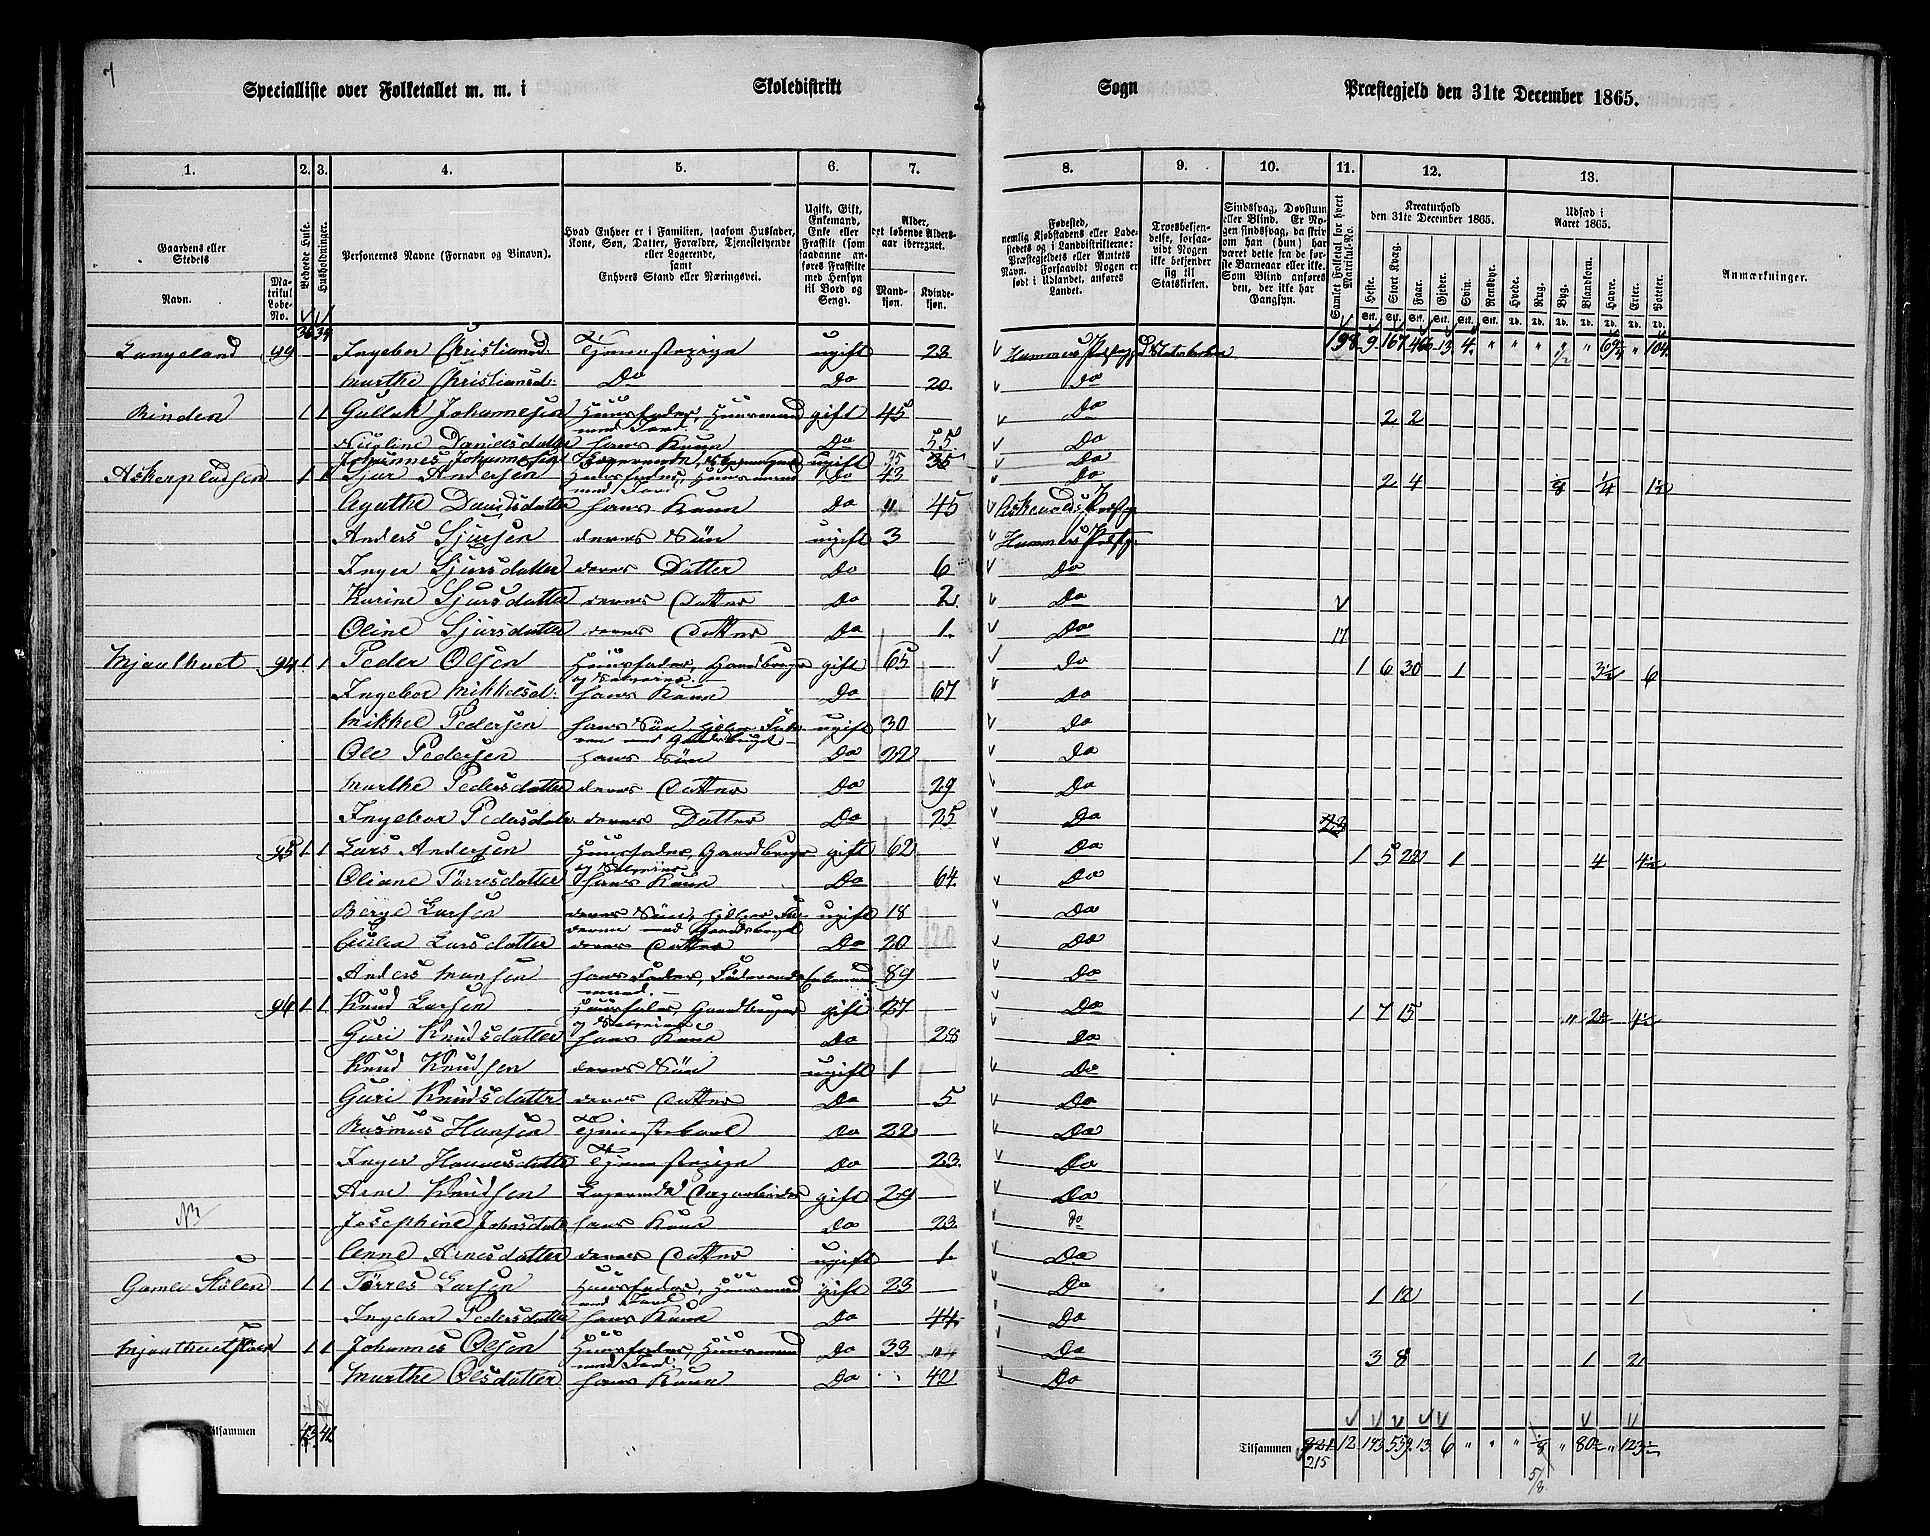 7
Specialliste over Folketallet m. m. i Skoledistrikt Sogn Præstegjeld den 31te December 1865.
1. 2. 3. 4. 5. 6. 7. 8. 9. 10. 11. 12. 13.
Gaardens eller Stedets Navn. Matrikul Løbe-No. Beboede Huse. Husholdninger. Personernes Navne (Fornavn og Binavn). Hvad Enhver er i Familien, saasom Husfader, Kone, Søn, Datter, Forældre, Tjenestetyende eller Logerende, samt Enhvers Stand eller Næringsvei. Ugift, Gift, Enkemand, Enke eller Fraskilt (som saadanne anføres Fraskilte med Hensyn til Bord og Seng). Alder, det løbende Aldersaar iberegnet. Mandkjøn. Kvindekjøn.
Fødested, nemlig Kjøbstadens eller Ladestedets og i Landdistrikterne: Præstegjeldets eller Amtets Navn. Forsaavidt Nogen er født i Udlandet, anføres Landet. Troesbekjendelse, forsaavidt Nogen ikke bekjender sig til Statskirken. Sindssvag, Døvstum eller Blind. Er Nogen sindssvag, da skriv om han (hun) har været dette fra før Barneaar eller ikke. Som Blind anføres den, der ikke har Gangsyn. Samlet Folketal for hvert Matrikul-No. Kreaturhold den 31te December 1865. Heste. Stort Kvæg. Faar. Gjeder. Svin. Rensdyr. Udsæd i Aaret 1865. Hvede. Rug. Byg. Blandkorn. Havre. Erter. Poteter. Anmærkninger.
36 34
Langeland 99 Ingebor Christiansd. Tjenestepige ugift 23 Hammers Præstegj. 198 9 167 466 13 4 " " " 1/2 " 69 3/4 " 104
Marthe Christiansd. Do Do 20 Do
Rinden 1 1 Gullak Johannesen Huusfader, Huusmand med Jord gift 45 Do 2 2
Nicoline Danielsdatter hans Kone Do 55 Do
Johannes Johannesen ugift 35 Do
Askerpladsen 1 1 Sjur Andersen Huusfader, Huusmand med Jord Do 43 Do 2 4 1/8 1/4 1 1/2
Agathe Danielsdatter hans Kone Do " 45 Askevolds Præstg.
Anders Sjursen deres Søn ugift 3 Hammers Præstg.
Inger Sjursdatter deres Datter Do 6 Do
Karine Sjursdatter deres Datter Do 2 Do
Oline Sjursdatter deres Datter Do 1 Do 17
Mjaathvet 94 1 1 Peder Olsen Huusfader, Gaardbruger og Selveier gift 65 Do 1 6 30 1 3 1/2 6
Ingebor Mikkelsd. hans Kone Do 67 Do
Mikkel Pedersen hans Søn, hjelper Faderen med Gaardsbruget ugift 30 Do
Ole Pedersen hans Søn Do 22 Do
Marthe Pedersdatter deres Datter Do 29 Do
Ingebor Pedersdatter deres Datter Do 25 Do 23
95 1 1 Lars Andersen Huusfader, Gaardbruger og Selveier gift 62 Do 1 5 22 1 4 4 1/2
Oliane Tørresdatter hans Kone Do 64 Do
Børge Larsen deres Søn, hjelper Faderen med Gaardsbruget ugift 18 Do
Cecilia Larsdatter deres Datter Do 20 Do
Anders Monsen hans Fader, Føderaadsmand Enkemand 89 Do
96 1 1 Knud Larsen Huusfader, Gaardbruger og Selveier gift 27 Do 1 7 15 " 2 1/2 4 1/2
Guri Knudsdatter hans Kone Do 28 Do
Knud Knudsen deres Søn ugift 1 Do
Guri Knudsdatter deres Datter Do 5 Do
Rasmus Hansen Tjenestekarl Do 22 Do
Inger Hansdatter Tjenestepige Do 23 Do
Arne Knudsen Logerende, Dagarbeider gift 29 Do
NB Josephine Johnsdatt. hans Kone Do 23 Do
Anne Arnesdatter deres Datter ugift 1 Do
Gamle Stølen 1 1 Tørres Larsen Huusfader, Huusmand med Jord gift 23 Do 1 12 1
Ingebor Pedersdatter hans Kone Do 44 Do
1 1 Johannes Olsen Huusfader, Huusmand med Jord Do 33 Do 3 8 1 2
Marthe Olsdatter hans Kone Do 42 Do
Tilsammen 43 42 Tilsammen 221 12 193 559 13 6 " " " 1/8 " 80 1/2 " 123 1/2
215 5/8